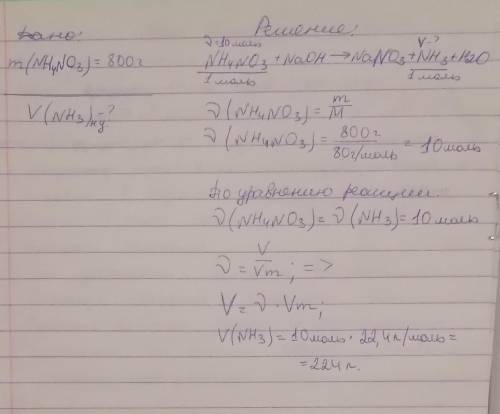 Дано:
m(NH₄NO₃) = 800г
V(NH₃)н.у.-?
Решение:
ν=10моль V-?
NH₄NO₃ + NaOH → NaNO₃ + NH₃ + H₂O
1 моль 1 моль
ν(NH₄NO₃) = m/M
ν(NH₄NO₃) = 800г/80г/моль = 10моль
По уравнению реакции:
ν(NH₄NO₃) = ν(NH₃) = 10 моль
ν = V/Vm; =>
V = ν · Vm;
V(NH₃) = 10моль · 22,4л/моль =
= 224л.